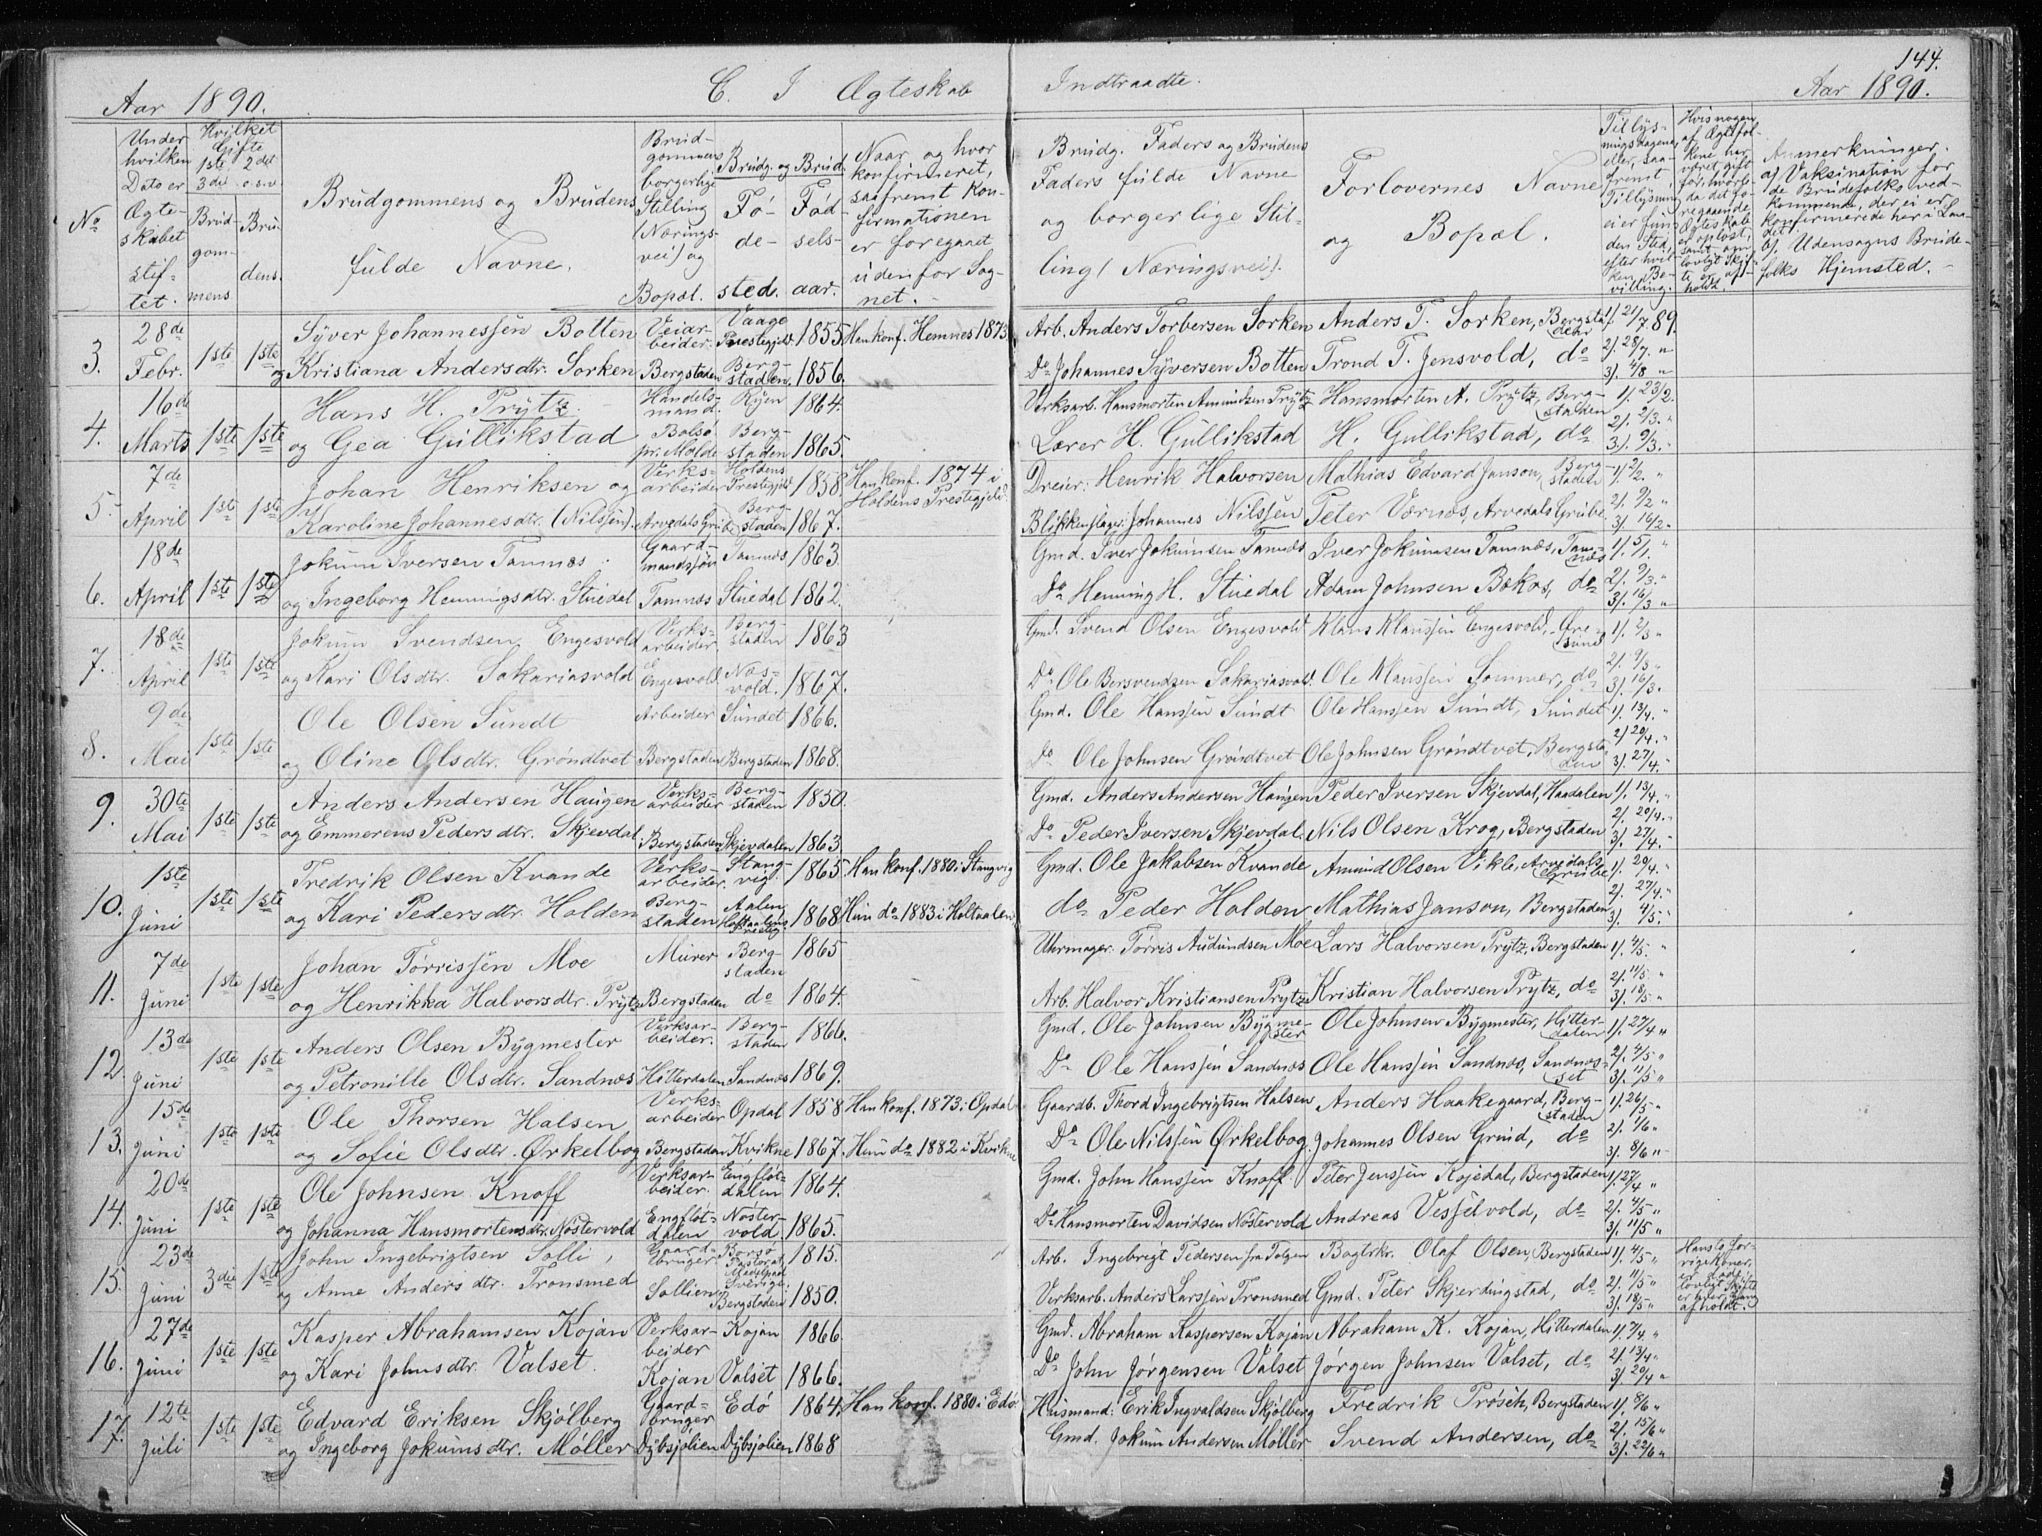 144.
Aar 1890.
C. I Ægteskab Indtraadte.
Aar 1890.
No
Under hvilken Dato er Ægteskabet stiftet.
Hvilket Gifte 1ste 2det 3die o.s.v.
Brudgommens
Brudens.
Brudgommens og Brudens fulde Navne.
Brudgommens borgerlige Stilling (Næringsvei) og Bopæl.
Brudg. og Brud.
Fødested.
Fødselsaar.
Naar og hvor konfirmeret, saafremt Konfirmationen er foregaaet udenfor Sognet.
Brudg. Faders og Brudens Faders fulde Navne og borgerlige Stilling (Næringsvei).
Forlovernes Navne og Bopæl.
Tillysningsdagene, eller, saafremt Tillysning ei er funden Sted, efter hvilken Bevilling.
Hvis nogen af Ægtefolkene har været gift før, hvorledes det foregaaende Ægteskab er opløst, samt om lovligt Skifte er afholdt.
Anmerkninger.
a) Vaksination for de Brudefolks vedkommende, der ei er konfirmerede her i Landet.
b) Udensogns Brudefolks Hjemsted.
3. 28de Febr. 1ste 1ste Syver Johannessen Botten Veiarbeider. Vaage Prestegjeld 1855. Han konf. Hemnes 1873. Arb. Anders Torbersen Sorken Anders T. Sorken, Bergstaden 1). 21/7 89.
og Kristiana Andersdtr. Sorken Bergstaden Bergstaden 1856. Do Johannes Syversen Botten Trond T. Jensvold, do 2). 28/7 " 3). 4/8 "
4. 16de Marts 1ste 1ste Hans H. Prytz Handelsmand. Røjen 1864. Verksarb. Hansmorten Amundsen Prytz Hansmorten A. Prytz, Bergstaden 1). 23/2.
og Gea Gullikstad Bolsø pr. Molde Bergstaden 1865. Lærer H. Gullikstad H. Gullikstad, do 2). 2/3. " 3). 9/3. "
5. 7de April 1ste 1ste Johan Henriksen og Verksarbeider Holdens Prestegjeld 1858. Han konf. 1874 i Holdens Prestegjeld. Dreier: Henrik Halvorsen Mathias Edvard Janson, Bergstaden 1). 2/2. "
Karoline Johannesdtr. (Nilssen). Arvedals Grube Bergstaden 1867. Blikkenslager: Johannes Nilssen Peter Værnæs, Arvedals Grube. 2). 9/2 " 3). 16/2 "
6. 18de April 1ste 1ste Jokum Iversen Tamnæs Gaardmandssøn Tamnæs 1863. Gmd. Iver Jokumsen Tamnæs Iver Jokumsen Tamnæs, Tamnæs 1). 5/1. "
og Ingeborg Henningsdtr. Stuedal Tamnæs Stuedal 1862. Do Henning H. Stuedal Adam Johnsen Bekos, do 2). 9/3. " 3). 16/3 "
7. 18de April 1ste 1ste Jokum Svendsen Engesvold Verksarbeider. Bergstaden 1863 Gmd. Svend Olsen Engesvold Klaus Klaussen Engesvold, Øresund 1). 2/3 "
og Kari Olsdtr. Sakariasvold Engesvold Næsvold. 1867. Do Ole Bersvendsen Sakariasvold. Ole Klaussen Sommer, do 2). 9/3 " 3). 16/3. "
8. 9de Mai 1ste 1ste Ole Olsen Sundt Arbeider Sundet 1866. Gmd. Ole Hanssen Sundt Ole Hanssen Sundt, Sundet 1). 13/4. "
og Oline Olsdtr. Grøndtvet Bergstaden Bergstaden 1868. Do Ole Johnsen Grøndtvet Ole Johnsen Grøndtvet, Bergstaden 2) 20/4. " 3). 27/4. "
9. 30te Mai 1ste 1ste Anders Andersen Haugen Verksarbeider Bergstaden 1850. Gmd. Anders Andersen Haugen Peder Iversen Skjevdal, Haadalen 1). 13/4. "
og Emmerens Pedersdtr. Skjevdal Bergstaden Skjevdalen 1863. Do Peder Iversen Skjevdal Nils Olsen Krog, Bergstaden 2). 20/4. " 3). 27/4. "
10. 1ste Juni 1ste 1ste Fredrik Olsen Kvande Verksarbeider. Stangvig. 1865. Han konf. 1880 i Stangvig Gmd. Ole Jakobsen Kvande Amund Olsen Vikle, Arvedals Grube 1). 20/4. "
og Kari Pedersdtr. Holden Bergstaden Aalen Holtaalens Prestg. 1868. Hun do 1883 i Holtaalen do Peder Holden Mathias Janson, Bergstaden 2). 27/4. " 3). 4/5. "
11. 7de Juni 1ste 1ste Johan Tørrissen Moe Murer Bergstaden 1865 Uhrmager. Tørris Audundsen Moe Lars Halvorsen Prytz, Bergstaden 1). 4/5. "
og Henrikka Halvorsdtr. Prytz Bergstaden do 1864. Arb. Halvor Kristiansen Prytz Kristian Halvorsen Prytz, do 2). 11/5. " 3). 18/5 "
12. 13de Juni 1ste 1ste Anders Olsen Bygmester Verksarbeider. Bergstaden 1866. Gmd. Ole Johnsen Bygmester Ole Johnsen Bygmester, Hitterdalen 1). 27/4 "
og Petronille Olsdtr. Sandnæs Hitterdalen Sandnæs 1869. Do Ole Hanssen Sandnæs Ole Hanssen Sandnæs, Sandnæsset 2). 4/5 " 3). 11/5 "
13. 15de Juni 1ste 1ste Ole Thorsen Halsen Verksarbeider Opdal 1858 Han konf. 1873 i Opdal Gaardb. Thord Ingebrigtsen Halsen Anders Haakegaard, Bergstaden 1). 26/5. "
og Sofie Olsdtr. Ørkelbog Bergstaden Kvikne 1867. Hun do 1882 i Kvikne Do Ole Nilssen Ørkelbog. Johannes Olsen Grind, do 2). 1/6 " 3). 8/6 "
14. 20de Juni 1ste 1ste Ole Johnsen Knoff Verksarbeider. Engflotdalen 1864. Gmd. John Hanssen Knoff. Peter Jenssen Kojedal, Bergstaden 1). 27/4 "
og Johanna Hansmortensdtr. Nøstervold Engflotdalen Nøstervold 1865. Do Hansmorten Davidsen Nøstervold Andreas Vesselvold, do 2). 4/5 " 3). 11/5 "
15. 23de Juni 3die 1ste John Ingebrigtsen Solli, Gaardbruger. Borsø Pastorat, Sverige. 1815. Arb. Ingebrigt Pedersen fra Tolgen Bogtrkr. Olaf Olsen, Bergstaden 1). 4/5 "
og Anne Andersdtr. Tronsmed Sollien Bergstaden 1850. Verksarb. Anders Larssen Tronsmed Gmd. Peter Skjerdingstad, do 2). 11/5 " 3). 18/5 " Hans to forrige Koner, er døde, lovligt Skifte er hver Gang afholdt.
16. 27de Juni 1ste 1ste Kasper Abrahamsen Kojan Verksarbeider Kojan 1866 Gmd. Abraham Kaspersen Kojan Abraham K. Kojan, Hitterdalen 1). 7/4 "
og Kari Johnsdtr. Valset. Kojan Valset 1866. Do John Jørgensen Valset Jørgen Johnsen Valset, do 2). 13/4 " 3). 20/4 "
17. 12te Juli 1ste 1ste Edvard Eriksen Skjølberg Gaardbruger Edø 1864. Han konf. 1880 i Edø. Husmand: Erik Ingvaldsen Skjølberg Fredrik Prøsch, Bergstaden 1). 8/6 "
og Ingeborg Jokumsdtr. Møller Dybsjolien Dybsjolien 1868 Gmd. Jokum Andersen Møller Svend Andersen, do 2). 15/6 " 3). 22/6 "